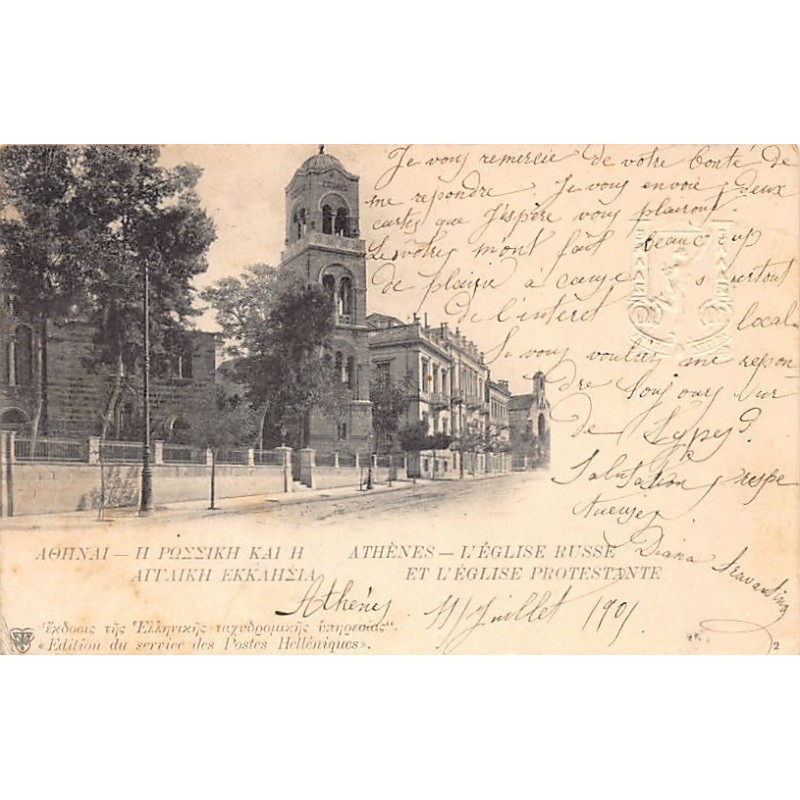 Je vous remercie de votre bonté de
me repondre. Je vous envoie deux
cartes que J'espère vous plairont.
Le vôtres mont fait beaucoup
de plaisir à cause surtout
de l'interet local
Si vous voulez me repon-
dre toujours sur
de
Salutation respe
ctueuses
Diana
ΑΘΗΝΑΙ — Η ΡΩΣΣΙΚΗ ΚΑΙ Η
ΑΓΓΛΙΚΗ ΕΚΚΛΗΣΙΑ
ATHÈNES — L'ÉGLISE RUSSE
ET L'ÉGLISE PROTESTANTE
Athènes 11/Juillet 1901
Ἔκδοσις τῆς Ἑλληνικῆς ταχυδρομικῆς ὑπηρεσίας".
«Edition du service des Postes Helléniques».
2